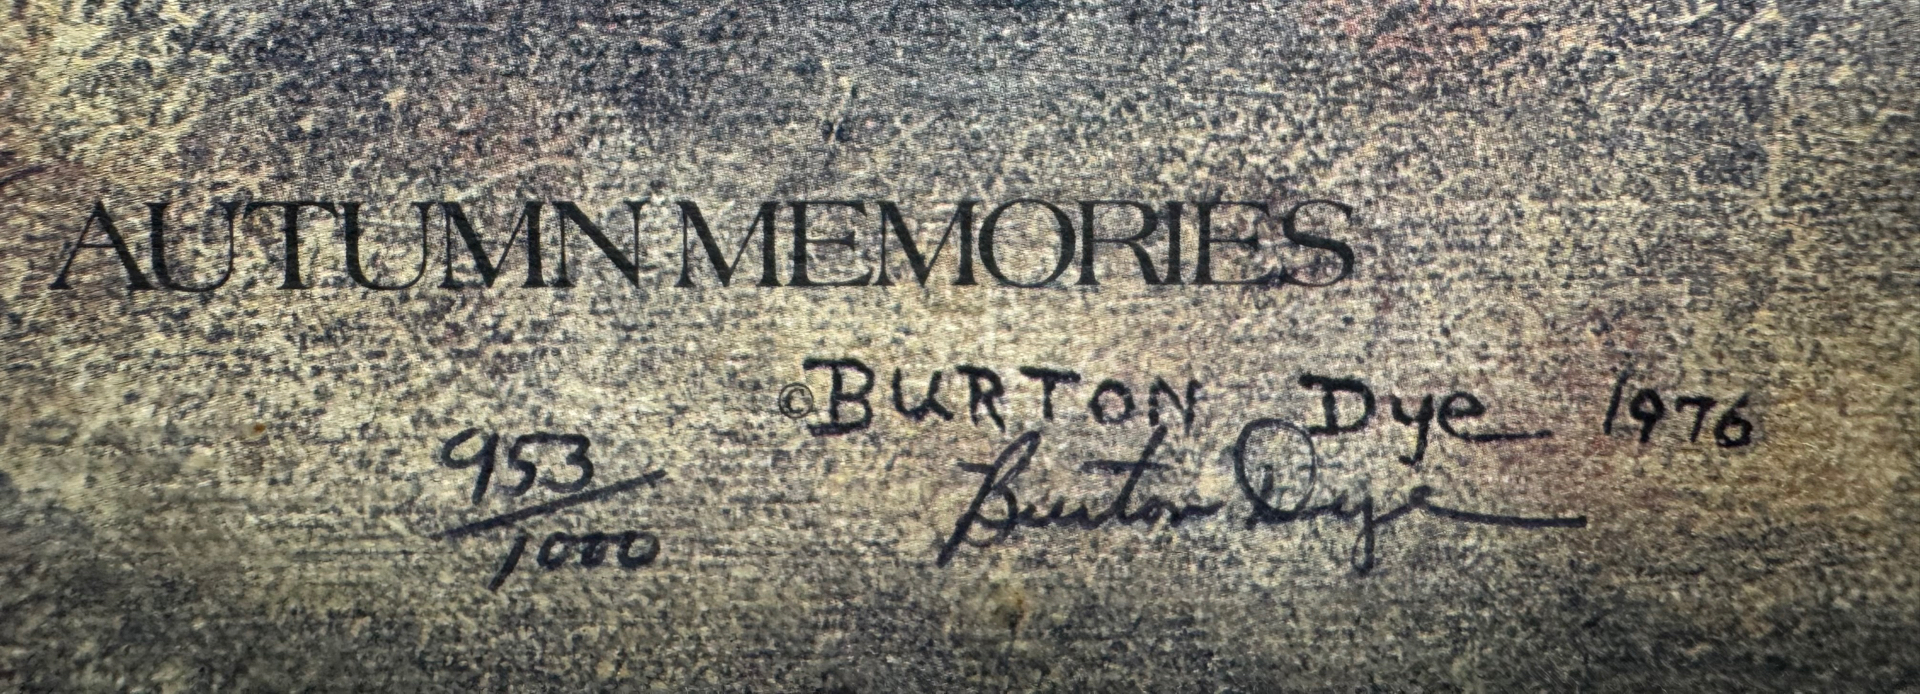 AUTUMN MEMORIES
©BURTON Dye 1976
953/1000
Burton Dye